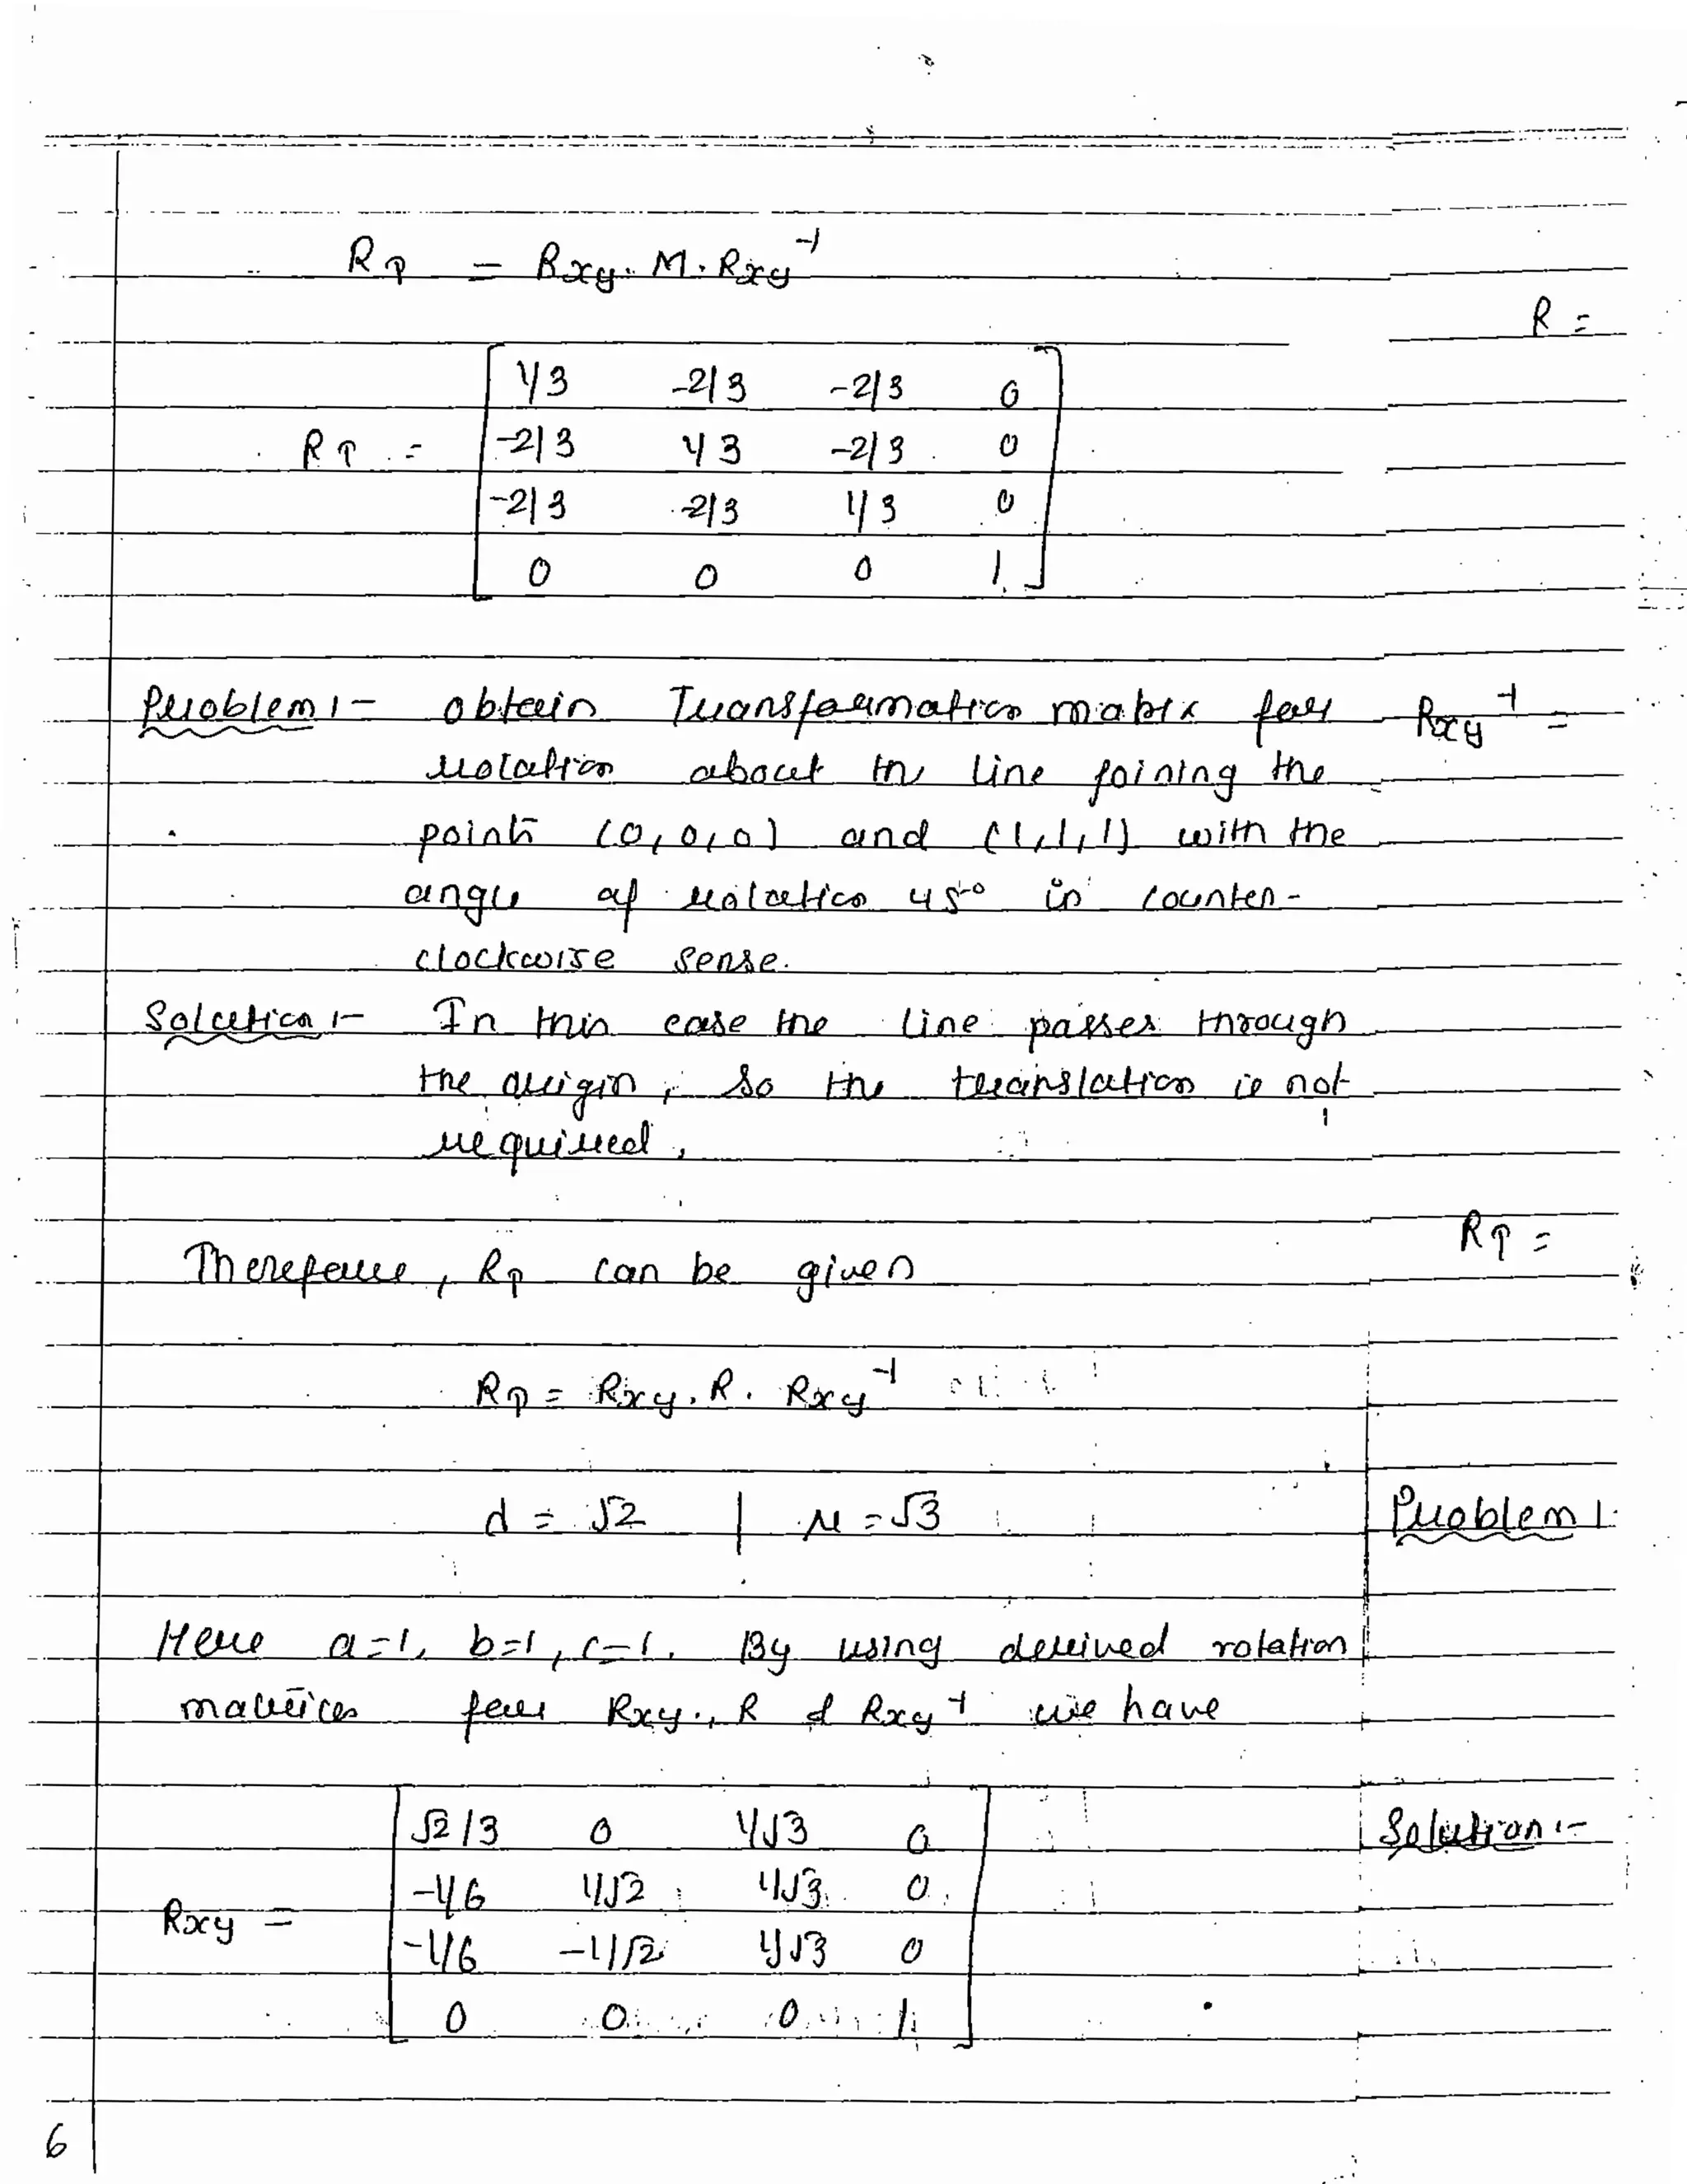 Rp = Rxy. M. Rxy⁻¹
Rp =
1/3 -2/3 -2/3 0
-2/3 1/3 -2/3 0
-2/3 -2/3 1/3 0
0 0 0 1
Problem :- obtain Transformation matrix for
rotation about the line joining the
points (0,0,0) and (1,1,1) with the
angle of rotation 45° in counter-
clockwise sense.
Solution :- In this case the line passes through
the origin, so the translation is not
required.
Therefore, Rp can be given
Rp = Rxy. R. Rxy⁻¹
d = √2 | r = √3
Here a=1, b=1, c=1. By using derived rotation
matrices for Rxy., R & Rxy⁻¹ we have
Rxy =
√2/3 0 1/√3 0
-1/6 1/√2 1/√3 0
-1/6 -1/√2 1/√3 0
0 0 0 1
6
R =
Rxy⁻¹ =
Rp =
Problem :
Solution :-